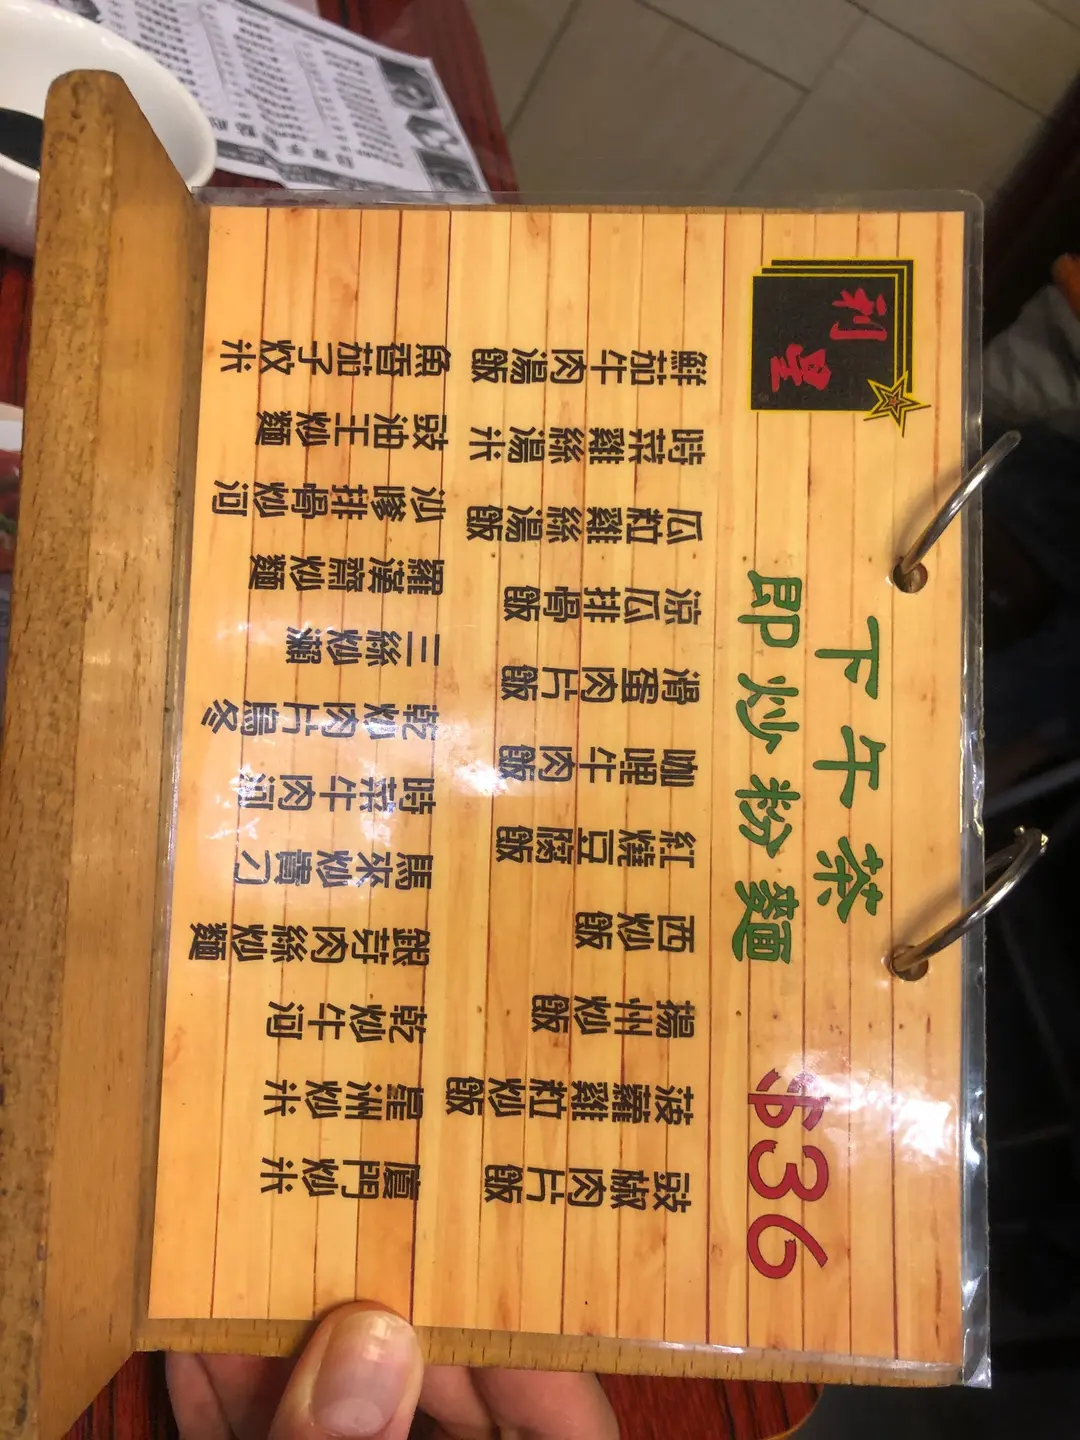 利星
下午茶
即炒粉麵
$36
豉椒肉片飯
菠蘿雞粒炒飯
揚州炒飯
西炒飯
紅燒豆腐飯
咖喱牛肉飯
滑蛋肉片飯
涼瓜排骨飯
瓜粒雞絲湯飯
時菜雞絲湯米
鮮茄牛肉湯飯
廈門炒米
星洲炒米
乾炒牛河
銀芽肉絲炒麵
馬來炒貴刁
時菜牛肉河
乾炒肉片烏冬
三絲炒瀨
羅漢齋炒麵
沙嗲排骨炒河
豉油王炒麵
魚香茄子炆米